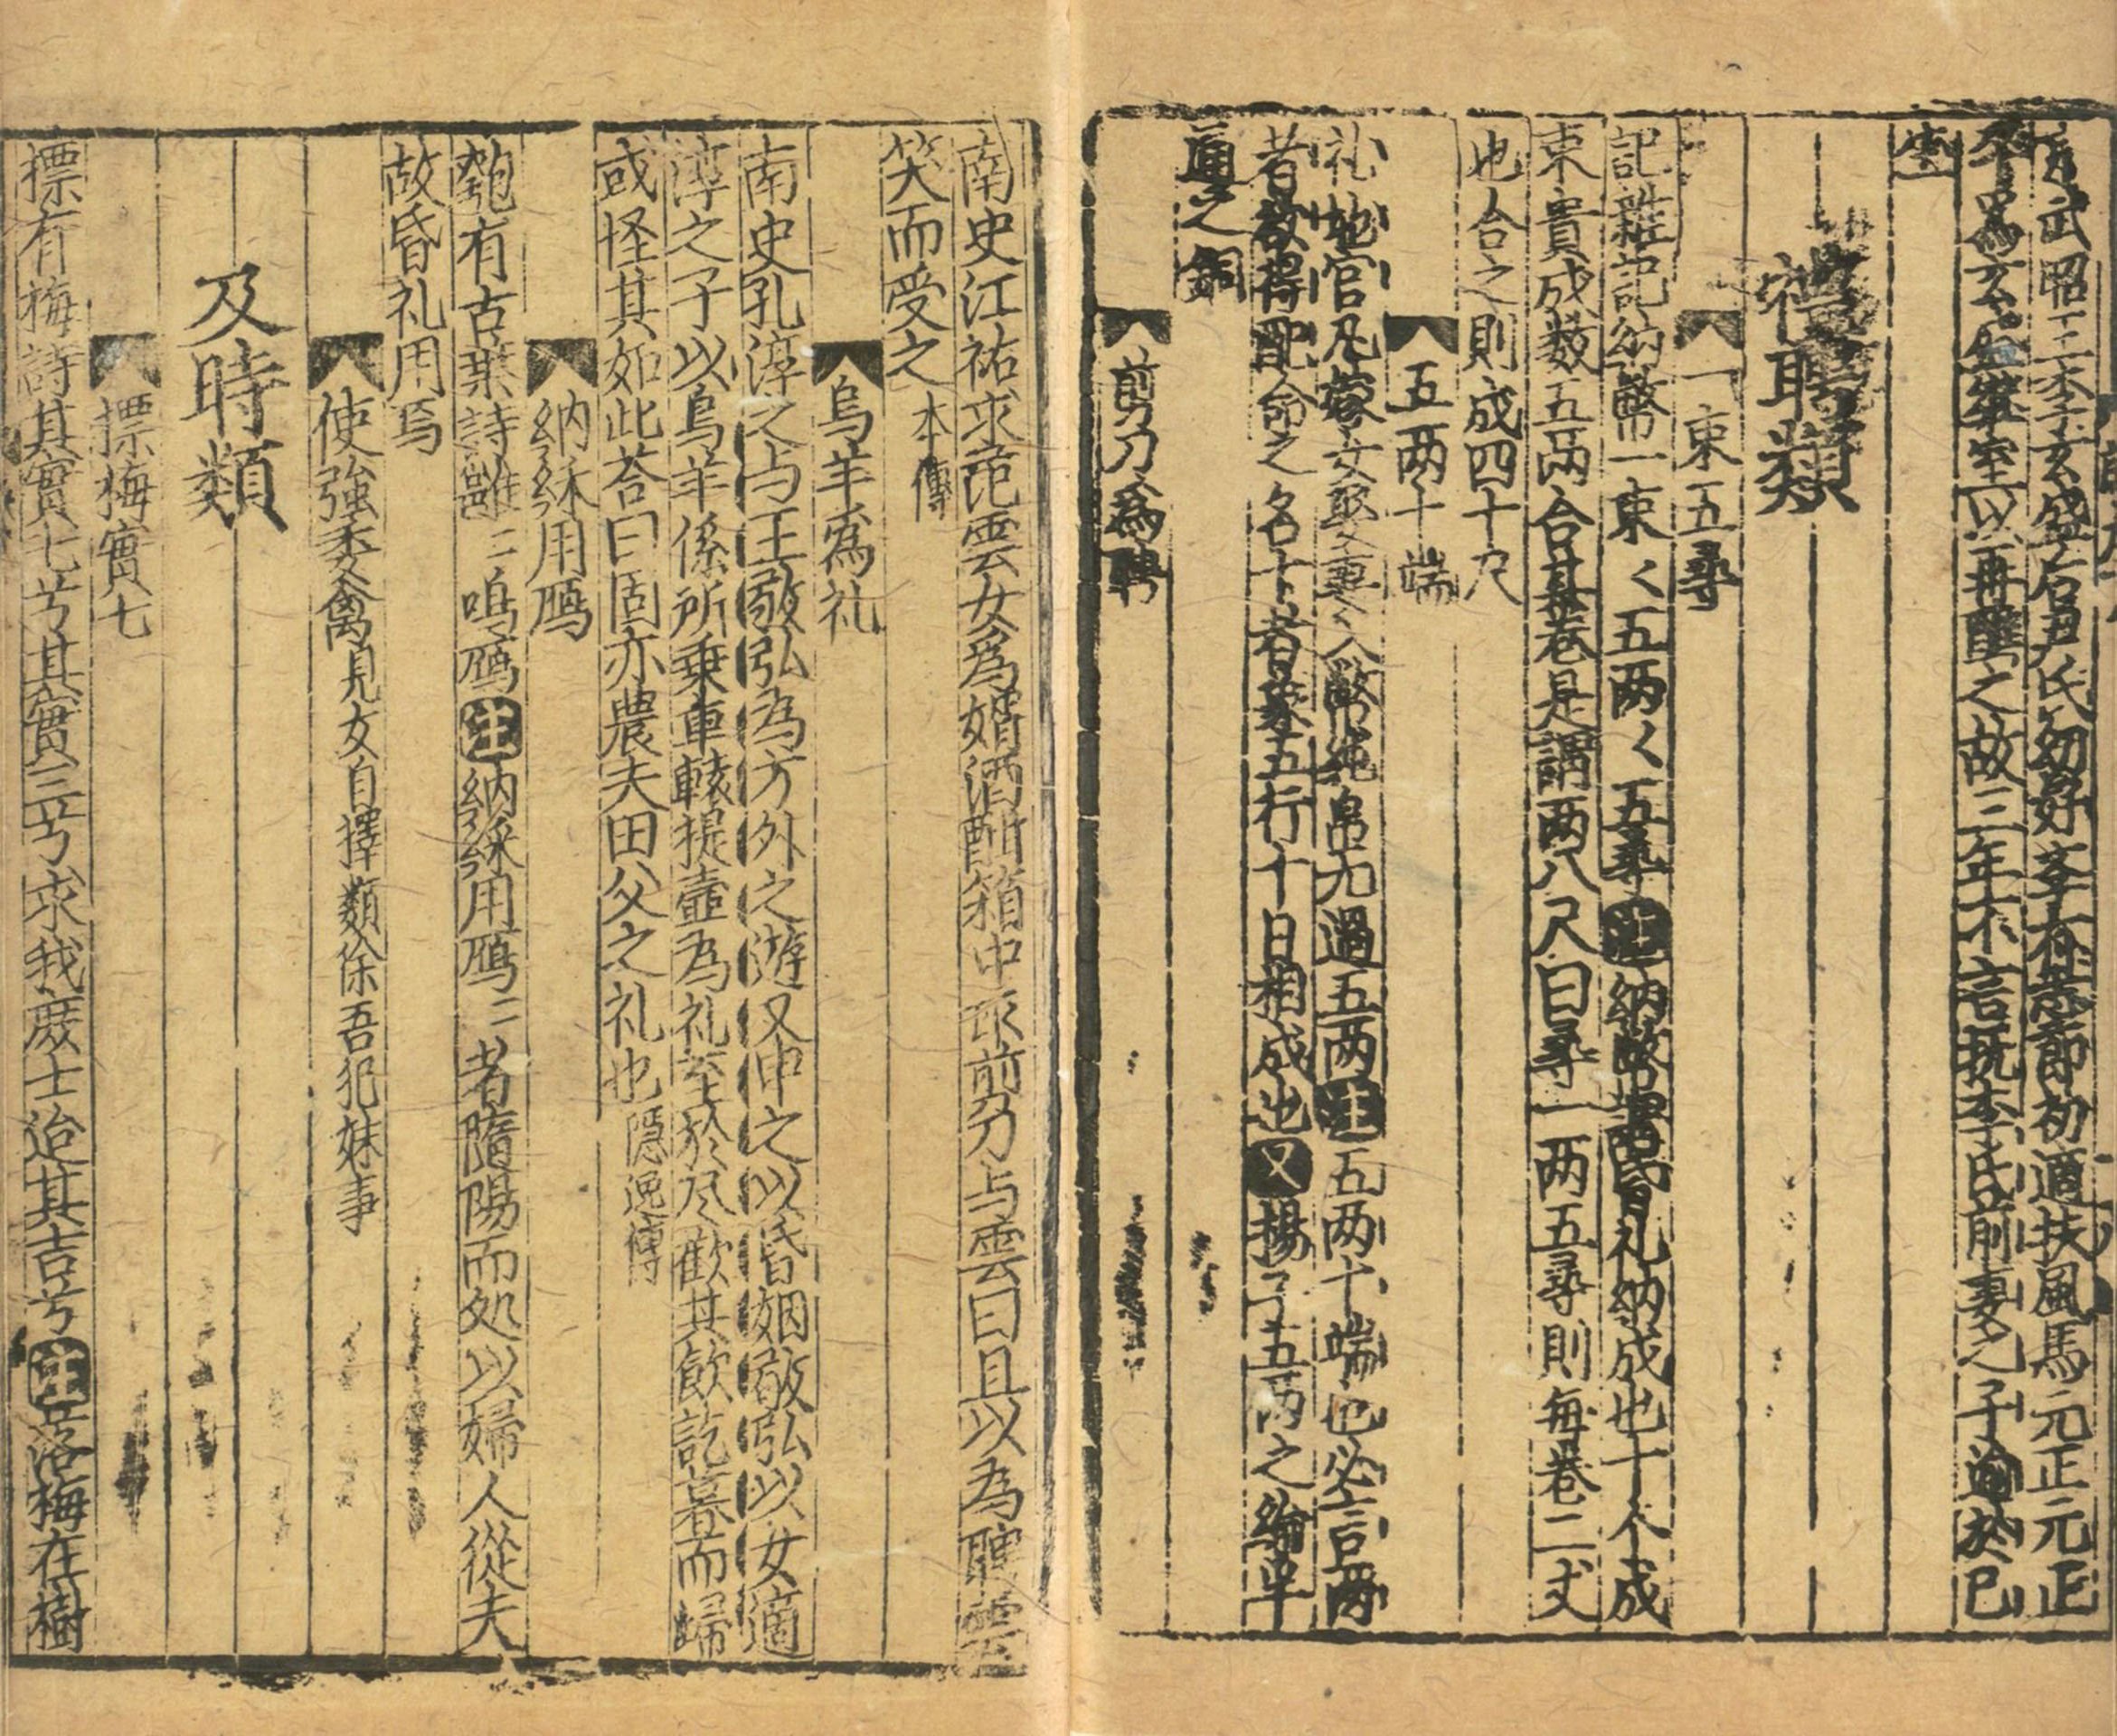 涼武昭王李玄盛后尹氏幼好李有志節初適扶風馬元正元正
卒為玄盛繼室以再醮之故三年不言撫李氏前妻之子逾於已
生
禮聘類
一束五尋
記雜記納幣一束〱五两〱五尋注納幣謂昏礼納成也十个成
束貴成数五两合其卷是謂两八尺曰尋一两五尋則每卷二丈
也合之則成四十尺
五两十端
礼地官凡嫁女娶妻〱入幣純帛无過五两注五两十端也必言两
者欲得配合之名十者象五行十日相成也又揚子五两之綸半
通之銅
剪刀為聘
南史江祏求范雲女為婚酒酣箱中取剪刀与雲曰且以為聘雲
笑而受之 本傳
烏羊為礼
南史孔淳之与王敬弘為方外之遊又申之以昏姻敬弘以女適
淳之子以烏羊係所乗車轅提壺為礼至於尽歡共飲訖暮而歸
或怪其如此荅曰固亦農夫田父之礼也 隠逸傳
納綵用鴈
匏有古葉詩雝〻鳴鴈注納綵用鴈〻者隨陽而処以婦人從夫
故昏礼用焉
使強委禽見女自擇類徐吾犯妹事
及時類
摽梅實七
摽有梅詩其實七兮其實三兮求我庶士迨其吉兮注落梅在樹